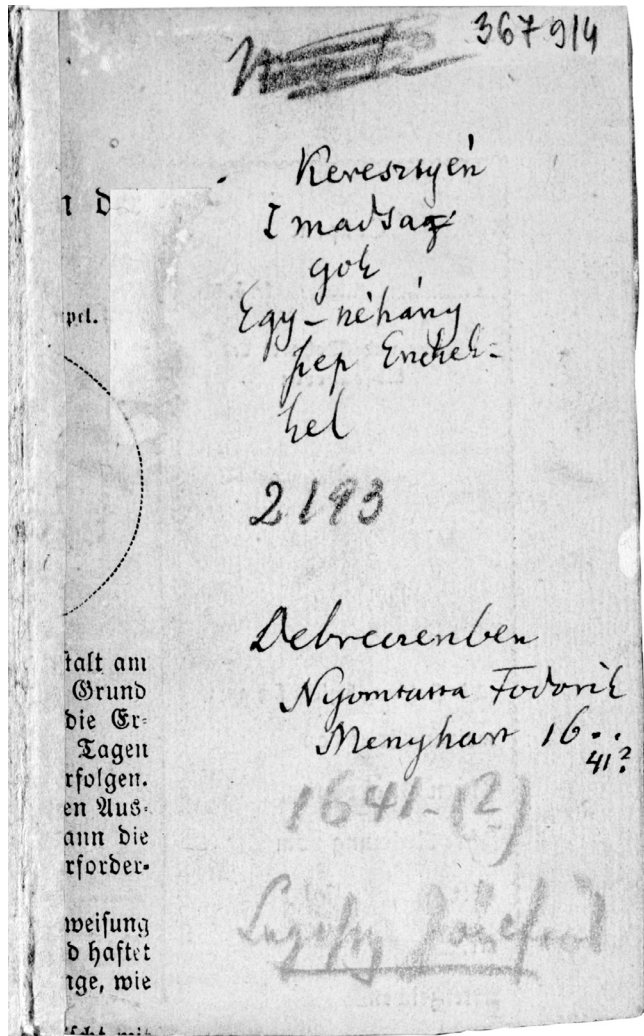 367914
Keresztyén
Imadsag
gok
Egy-néhány
szep Enekek-
kel
2193
Debreczenben
Nyomtatta Fodorik
Menyhart 16..
41?
1641-(2)
n d
pel.
talt am
Grund
die Er-
Tagen
rfolgen.
en Aus-
ann die
rforder-
weisung
d haftet
nge, wie